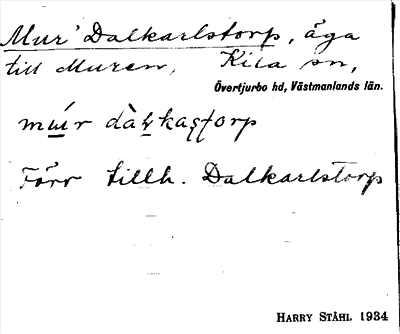 Mur' Dalkarlstorp, äga
till Muren, Kila sn,
Övertjurbo hd, Västmanlands län.
Förr tillh. Dalkarlstorp
HARRY STÅHL 1934